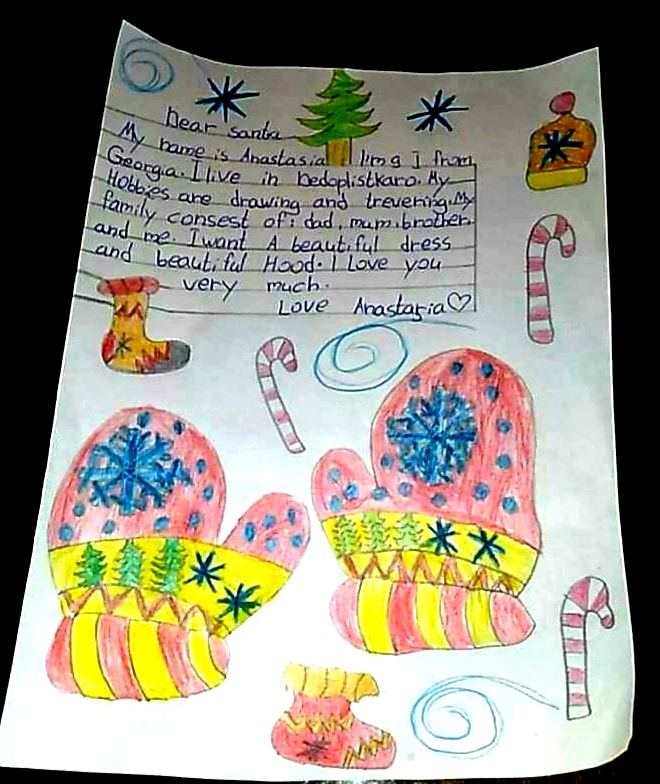 Dear santa
My name is Anastasia I'm 9 I from
Georgia. I live in Dedoplistkaro. My
Hobbies are drawing and trevering. My
family consest of: dad, mum, brother
and me. I want A beautiful dress
and beautiful Hood. I Love you
very much.
Love Anastasia